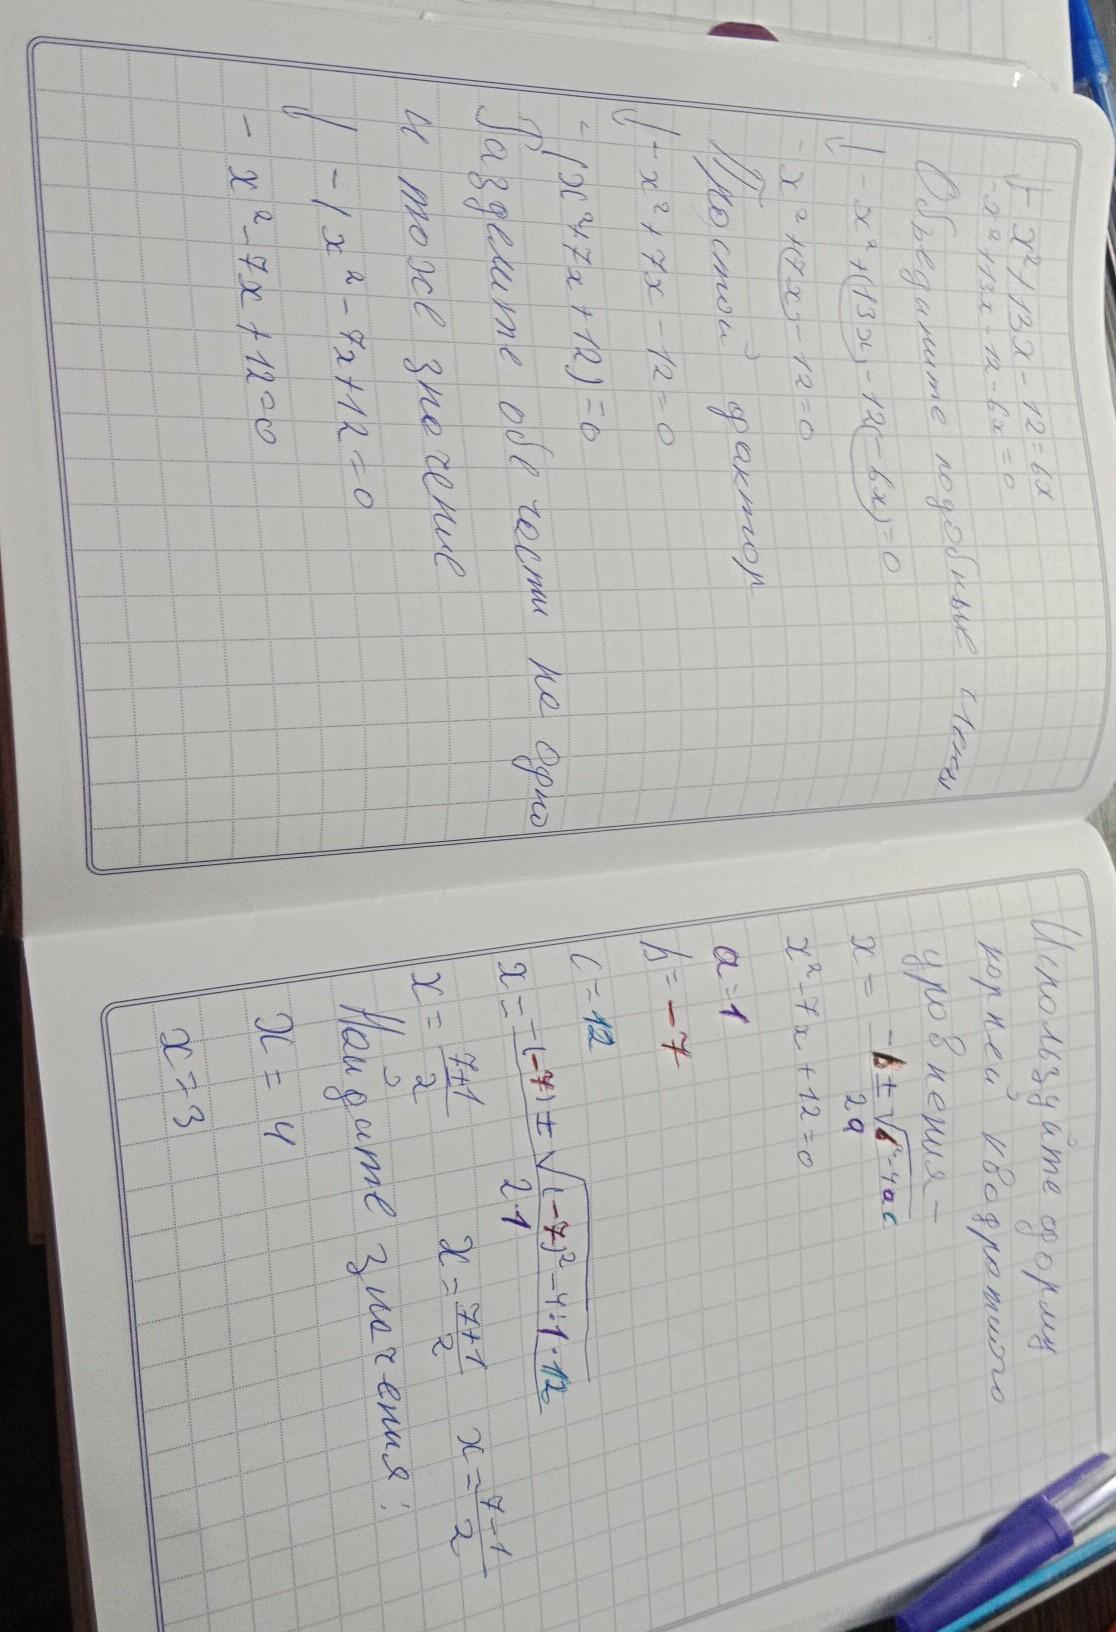 - x² + 13x - 12 = 6x
-x² + 13x - 12 - 6x = 0
Объедините подобные
- x² + (13x) - 12 (- 6x) = 0
- x² + (7x) - 12 = 0
Простой фактор
- x² + 7x - 12 = 0
- (x² + 7x + 12) = 0
Разделите обе части на одно
и тоже значение
- 1 x² - 7x + 12 = 0
- x² - 7x + 12 = 0
Используйте форму
корней квадратного
уровнения -
x = -b ± √b² - 4ac
2a
x² - 7x + 12 = 0
a = 1
b = -7
c = 12
x = -(-7) ± √(-7)² - 4·1·12
2·1
x = 7±1 x = 7+1 x = 7-1
2 2 2
Найдите значения:
x = 4
x = 3